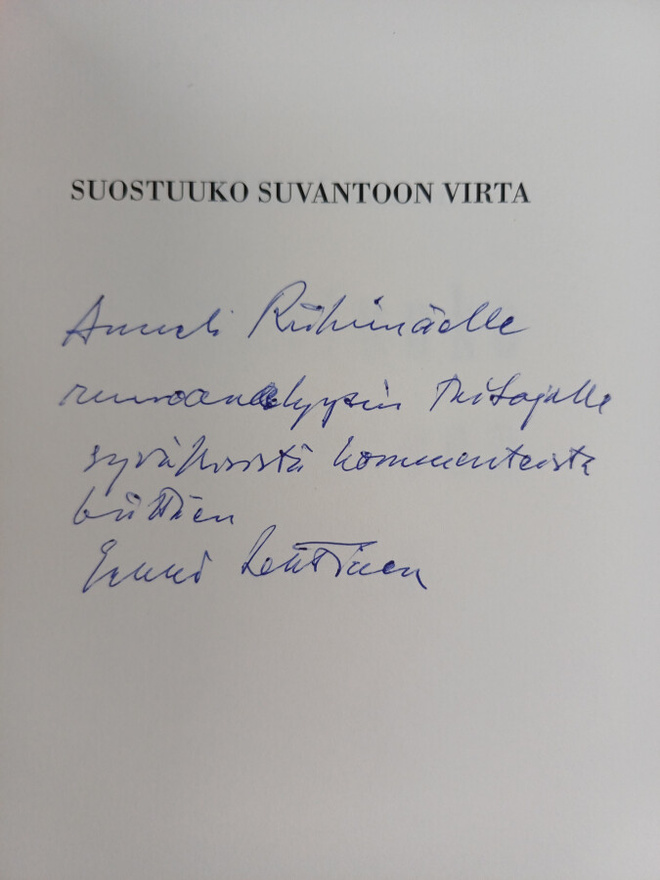 SUOSTUUKO SUVANTOON VIRTA
Anneli Riihimäelle
runoanalyysin taitajalle
syvällisistä kommenteista
kiittäen
Lehtinen